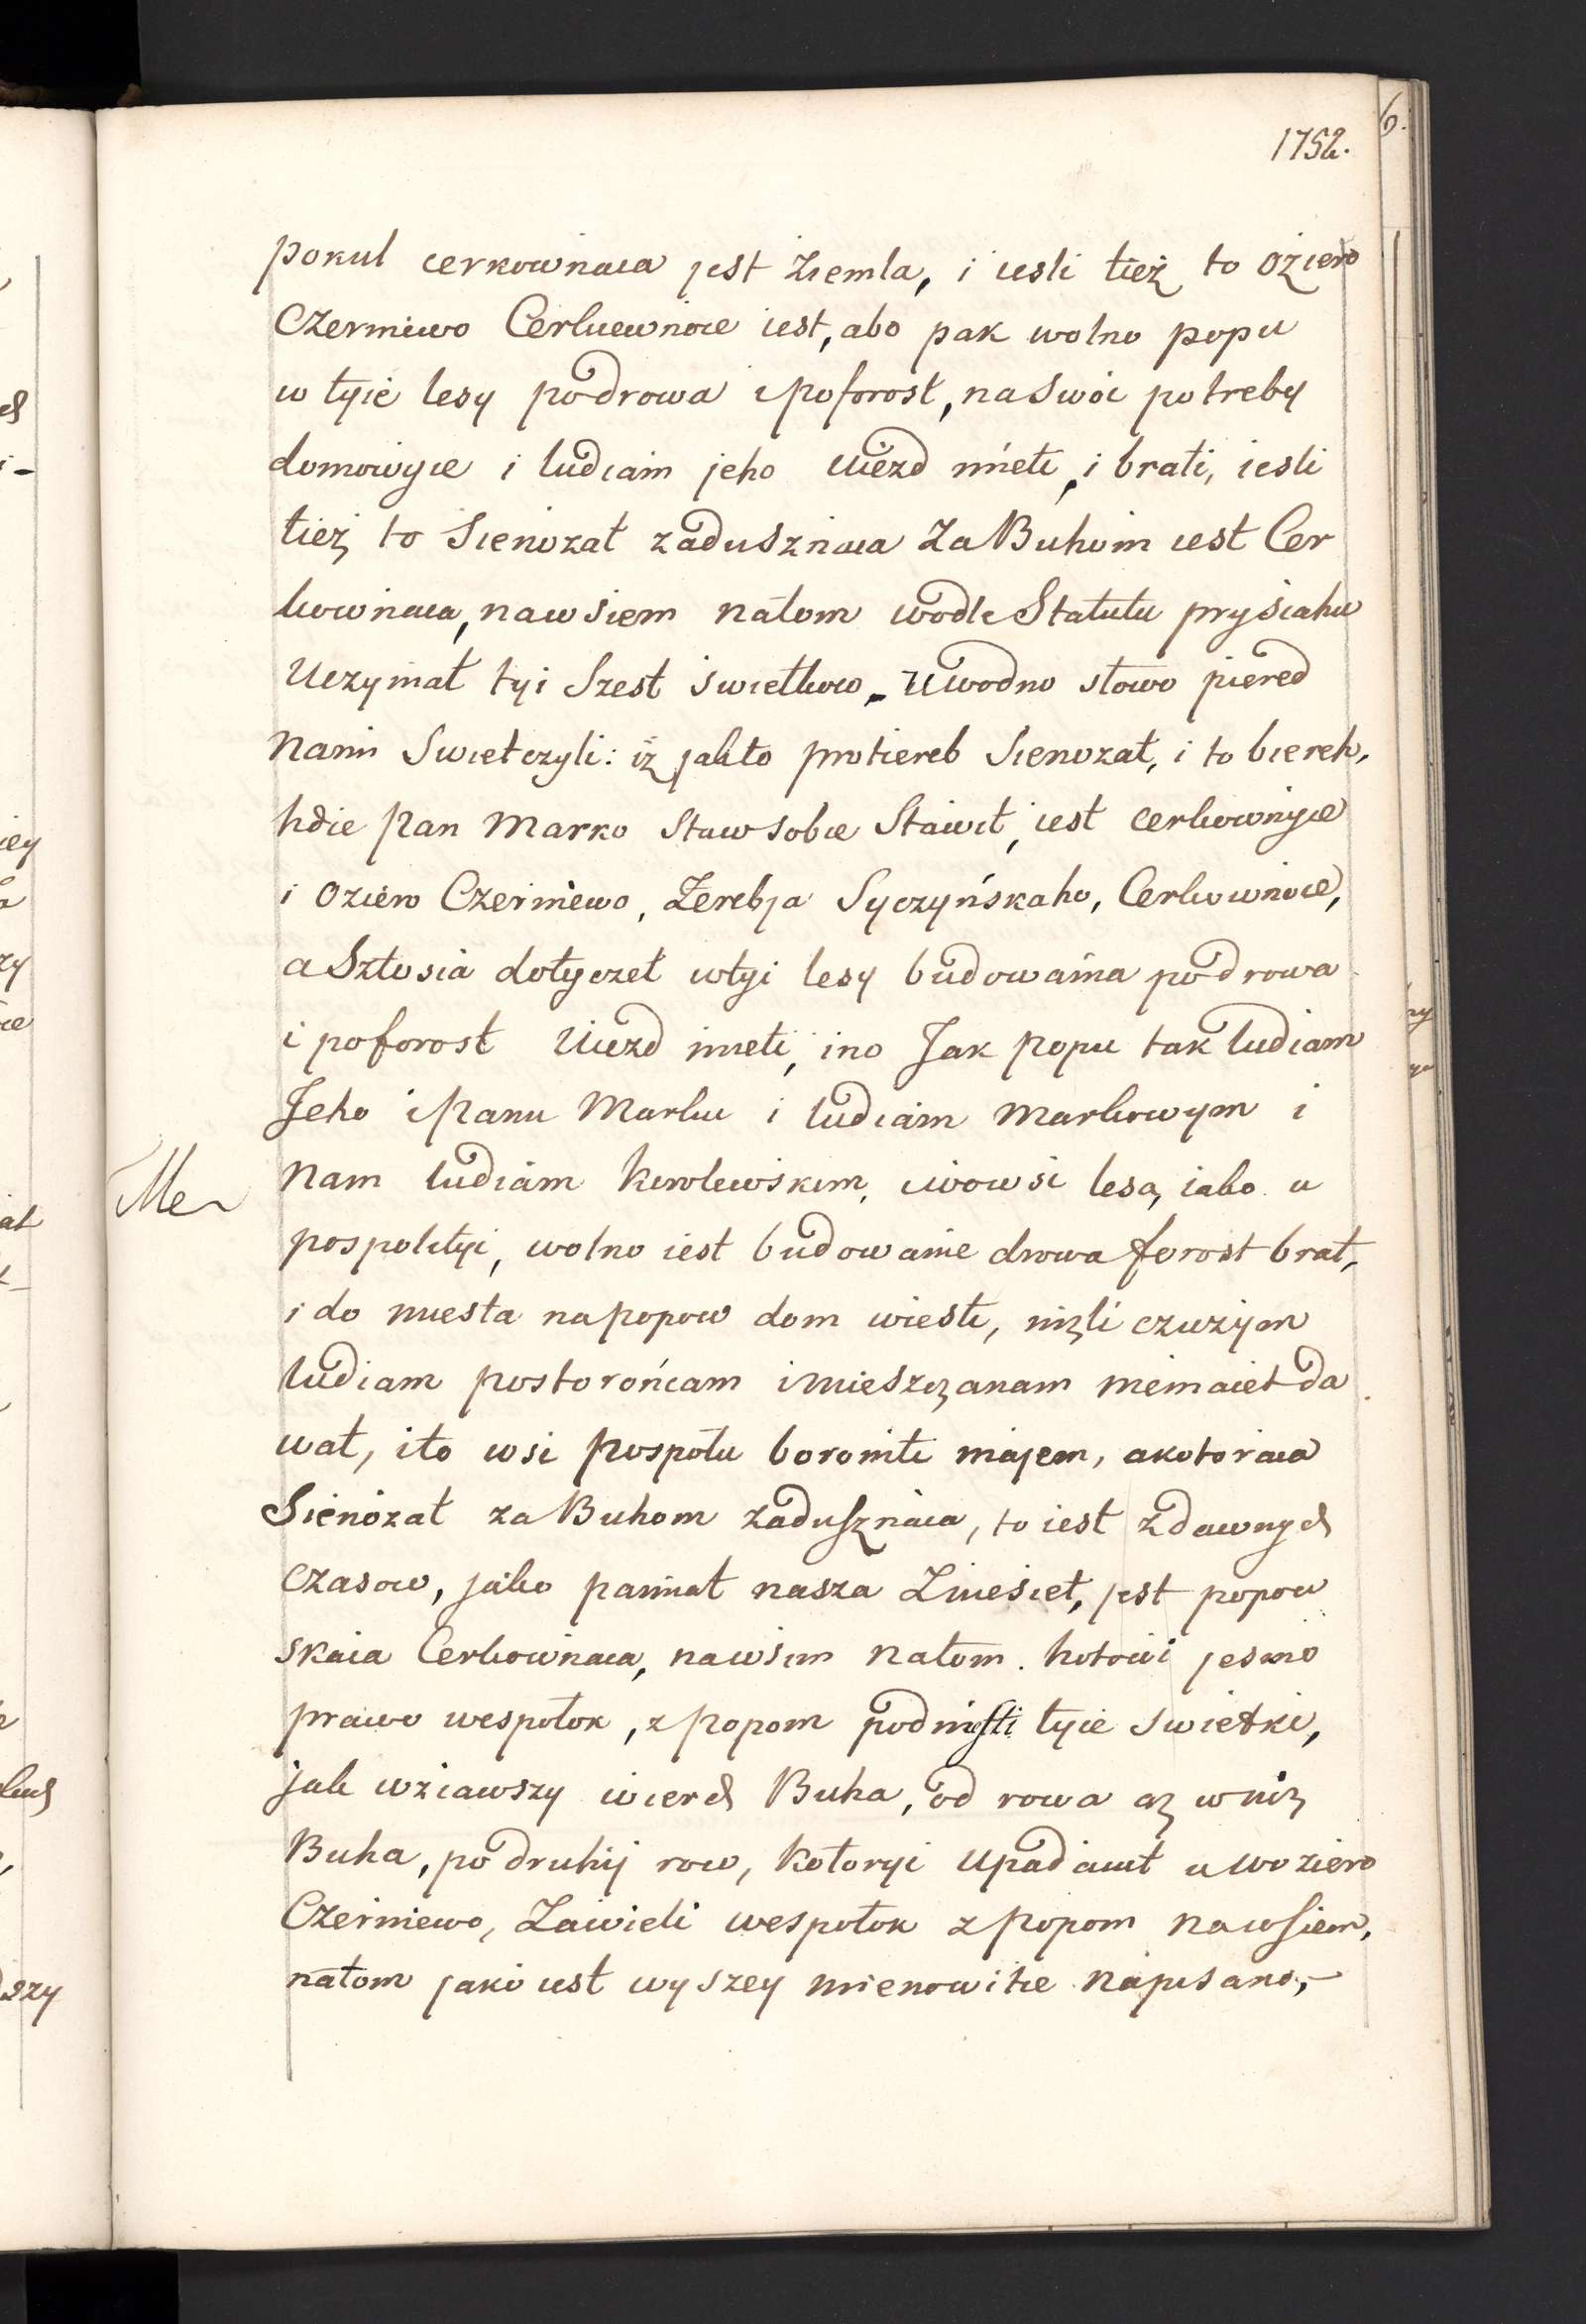 1752.
6.
pokul cerkownaia jest Ziemla, i iesli tież to oziero
Czerniewo Cerkuewnoie iest, abo pak wolno popu
w tyie lesy podrowa i poforost, na swoi potreby
domowyie i ludiam jeho uiezd mieti, i brati, iesli
tież to Sienozat zadusznaia Za Buhom iest Cer
kownaia, nawsiem natom wodle Statutu prysiahu
Uczymał tyi Szest swietkow, uwodno słowo piered
nami Swietczyli: iż jakto protiereb Sienozat, i to biereh,
hdie Pan Marko Staw sobie Stawił, iest cerkownyie
i oziero Czerniewo, Zerebja Syczyńskaho, Cerkownoie,
a Sztosia dotyczet wtyi lesy budowania podrowa
i poforost Uiezd imeti, ino Jak popu tak ludiam
Jeho i Panu Marku i ludiam Markowym i
nam ludiam korolewskim, iwowsi lesa, iako u
pospolityi, wolno iest budowanie drowa forost brat,
i do miesta napopow dom wiesti, niżli czużym
ludiam postorońcam i mieszczanam niemaiet da
wat, ito wsi pospołu boroniti majem, akotoraia
Sienozat za Buhom zadusznaia, to iest zdawnych
czasow, jako pamiat nasza Zniesiet, jest popow
skaia Cerkownaia, nawsiem natom hotowi jesmo
prawo wespołok, z popom podniesti tyie swietki,
jak wziawszy wierch Buha, od rowa aż wniz
Buha, po druhij row, kotoryi upadaiut u woziero
Czerniewo, Zawieli wespołok z popom nawsiem,
natom jako iest wyszey mienowitie napisano,